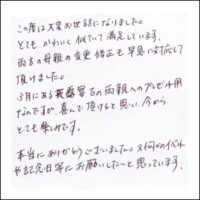 この度は大変お世話になりました。
とても、かわいく似ていて満足しています。
両方の母親の変更修正も早急に対応して
頂けました。
3月にある披露宴での両親へのプレゼント用
なのですが、喜んで頂けると思い、今から
とても楽しみです。
本当にありがとうございました。又何かのイベント
や記念日等にお願いしたいと思っています。